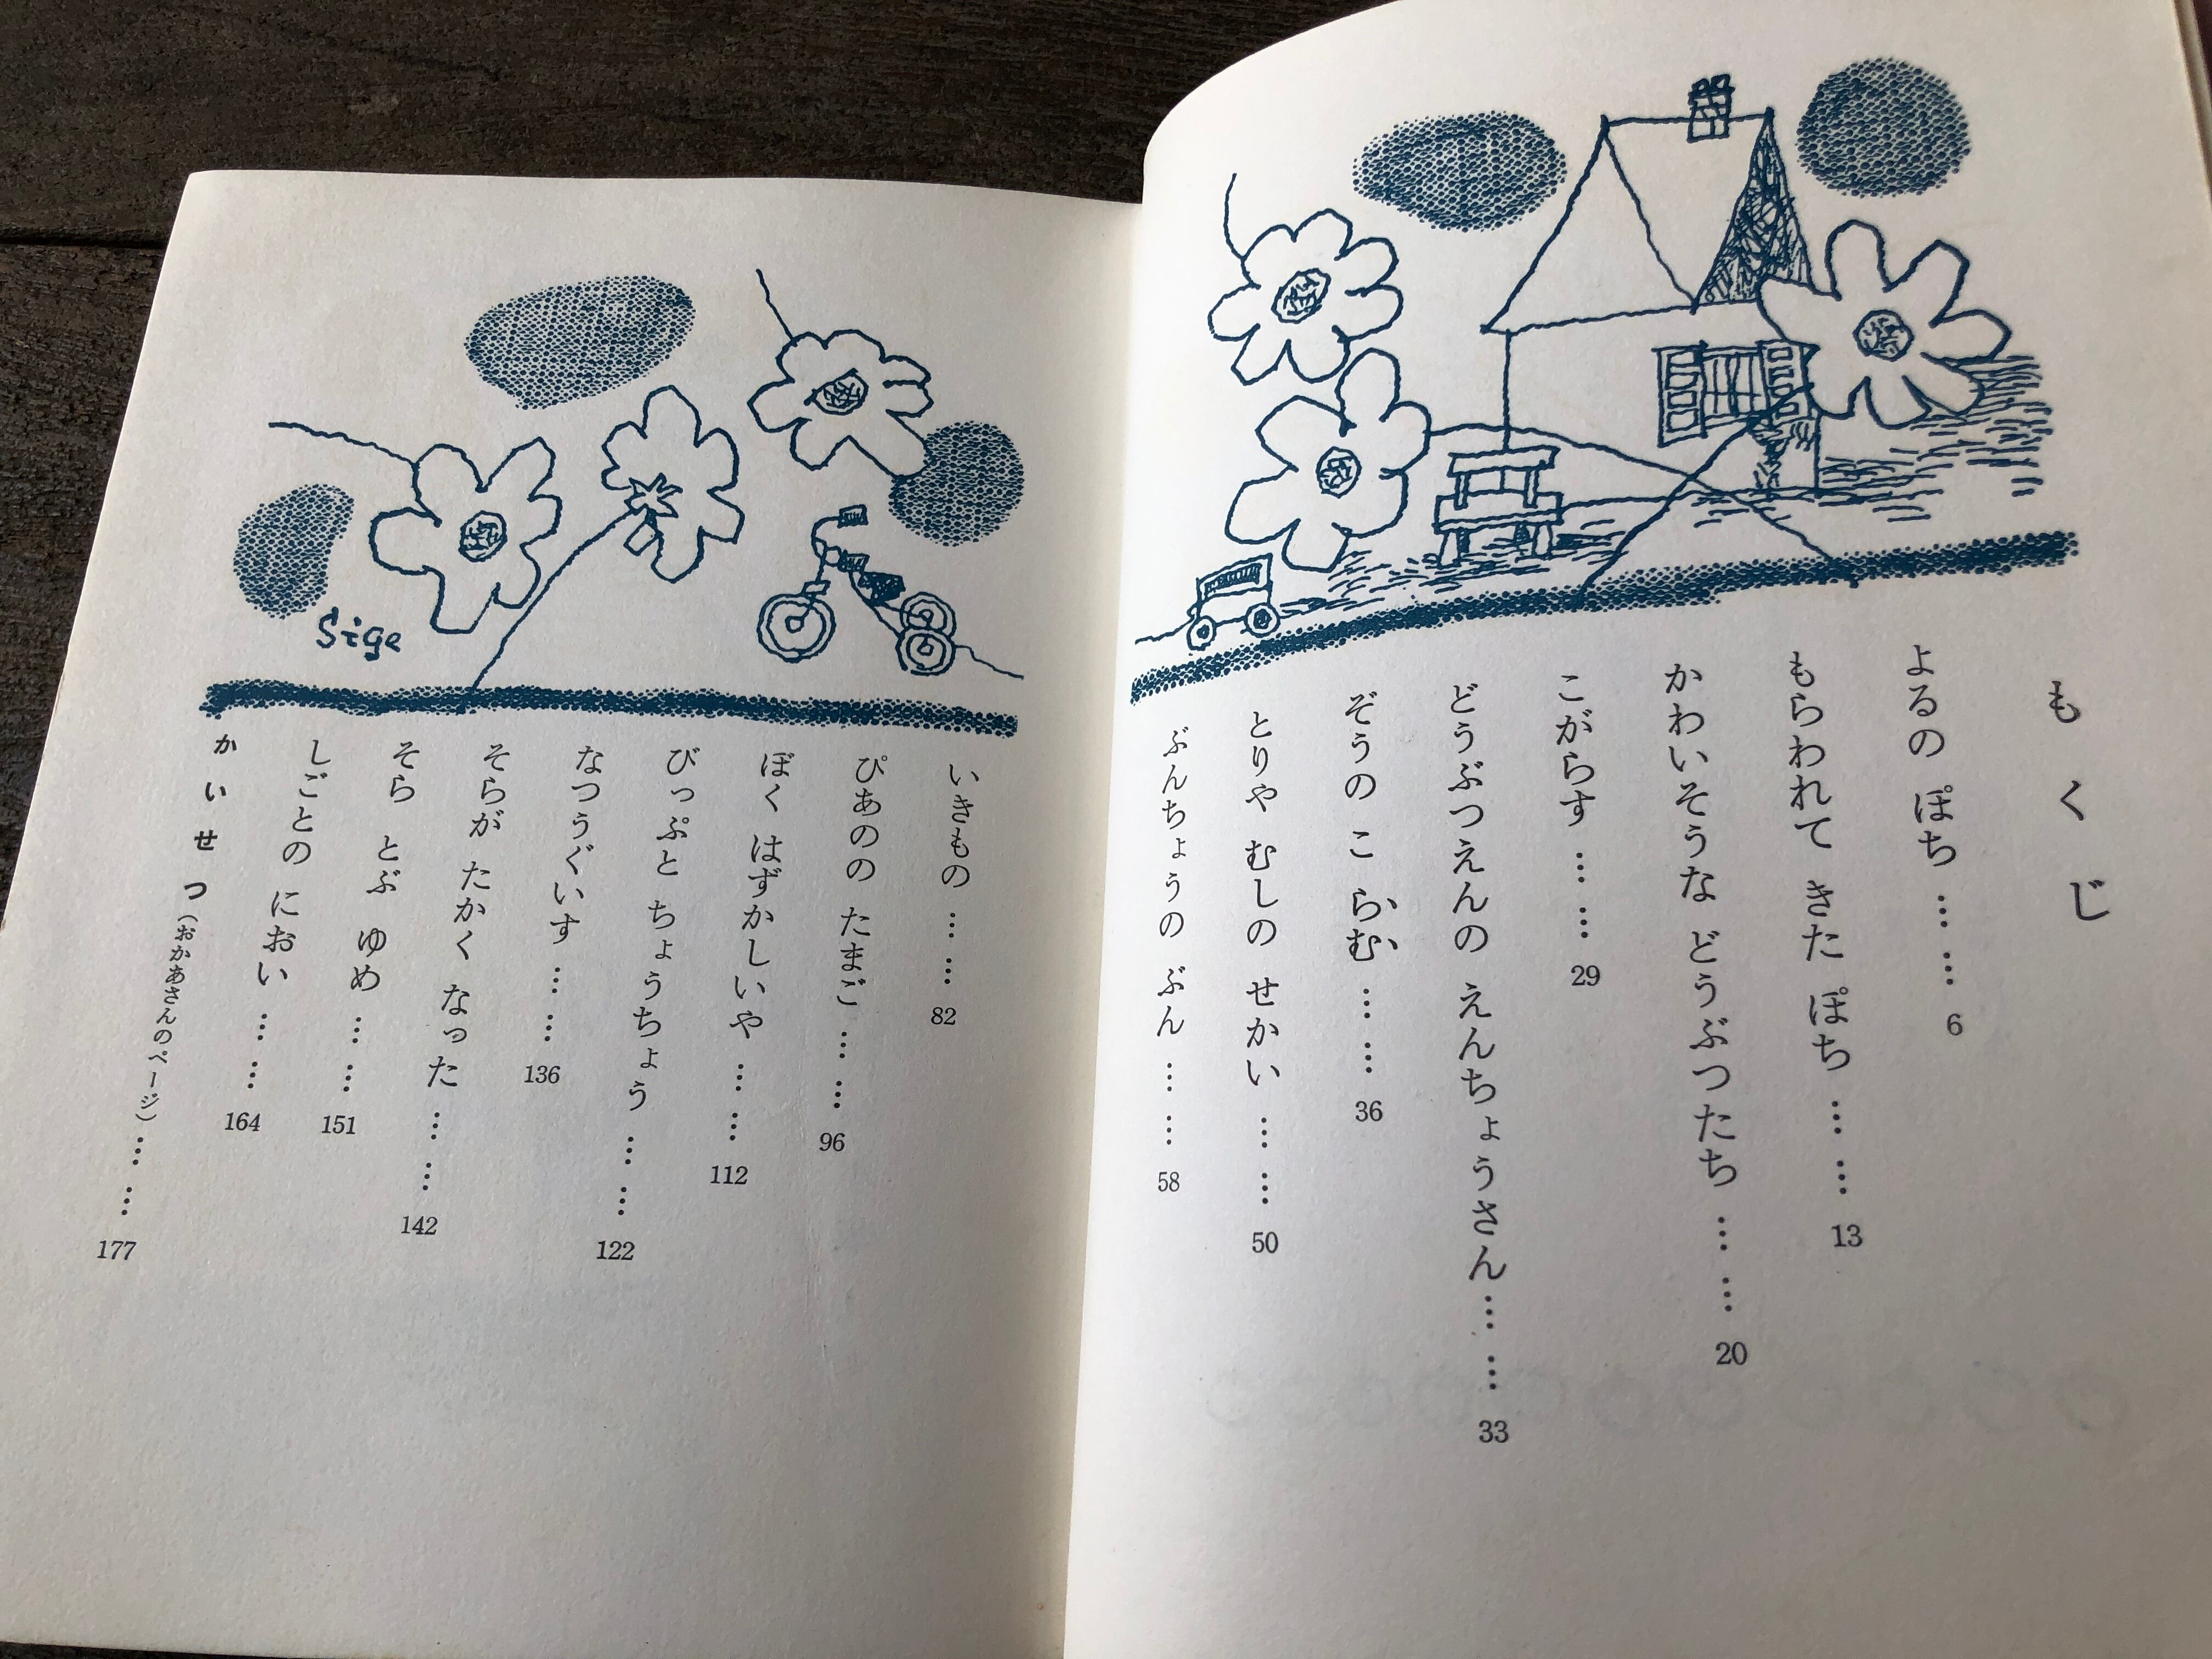 もくじ
よるの ぽち …… 6
もらわれて きた ぽち …… 13
かわいそうな どうぶつたち …… 20
こがらす …… 29
どうぶつえんの えんちょうさん …… 33
ぞうの こ らむ …… 36
とりや むしの せかい …… 50
ぶんちょうの ぶん …… 58
Sige
いきもの …… 82
ぴあのの たまご …… 96
ぼく はずかしいや …… 112
びっぷと ちょうちょう …… 122
なつうぐいす …… 136
そらが たかく なった …… 142
そら とぶ ゆめ …… 151
しごとの におい …… 164
かいせつ（おかあさんのページ） …… 177